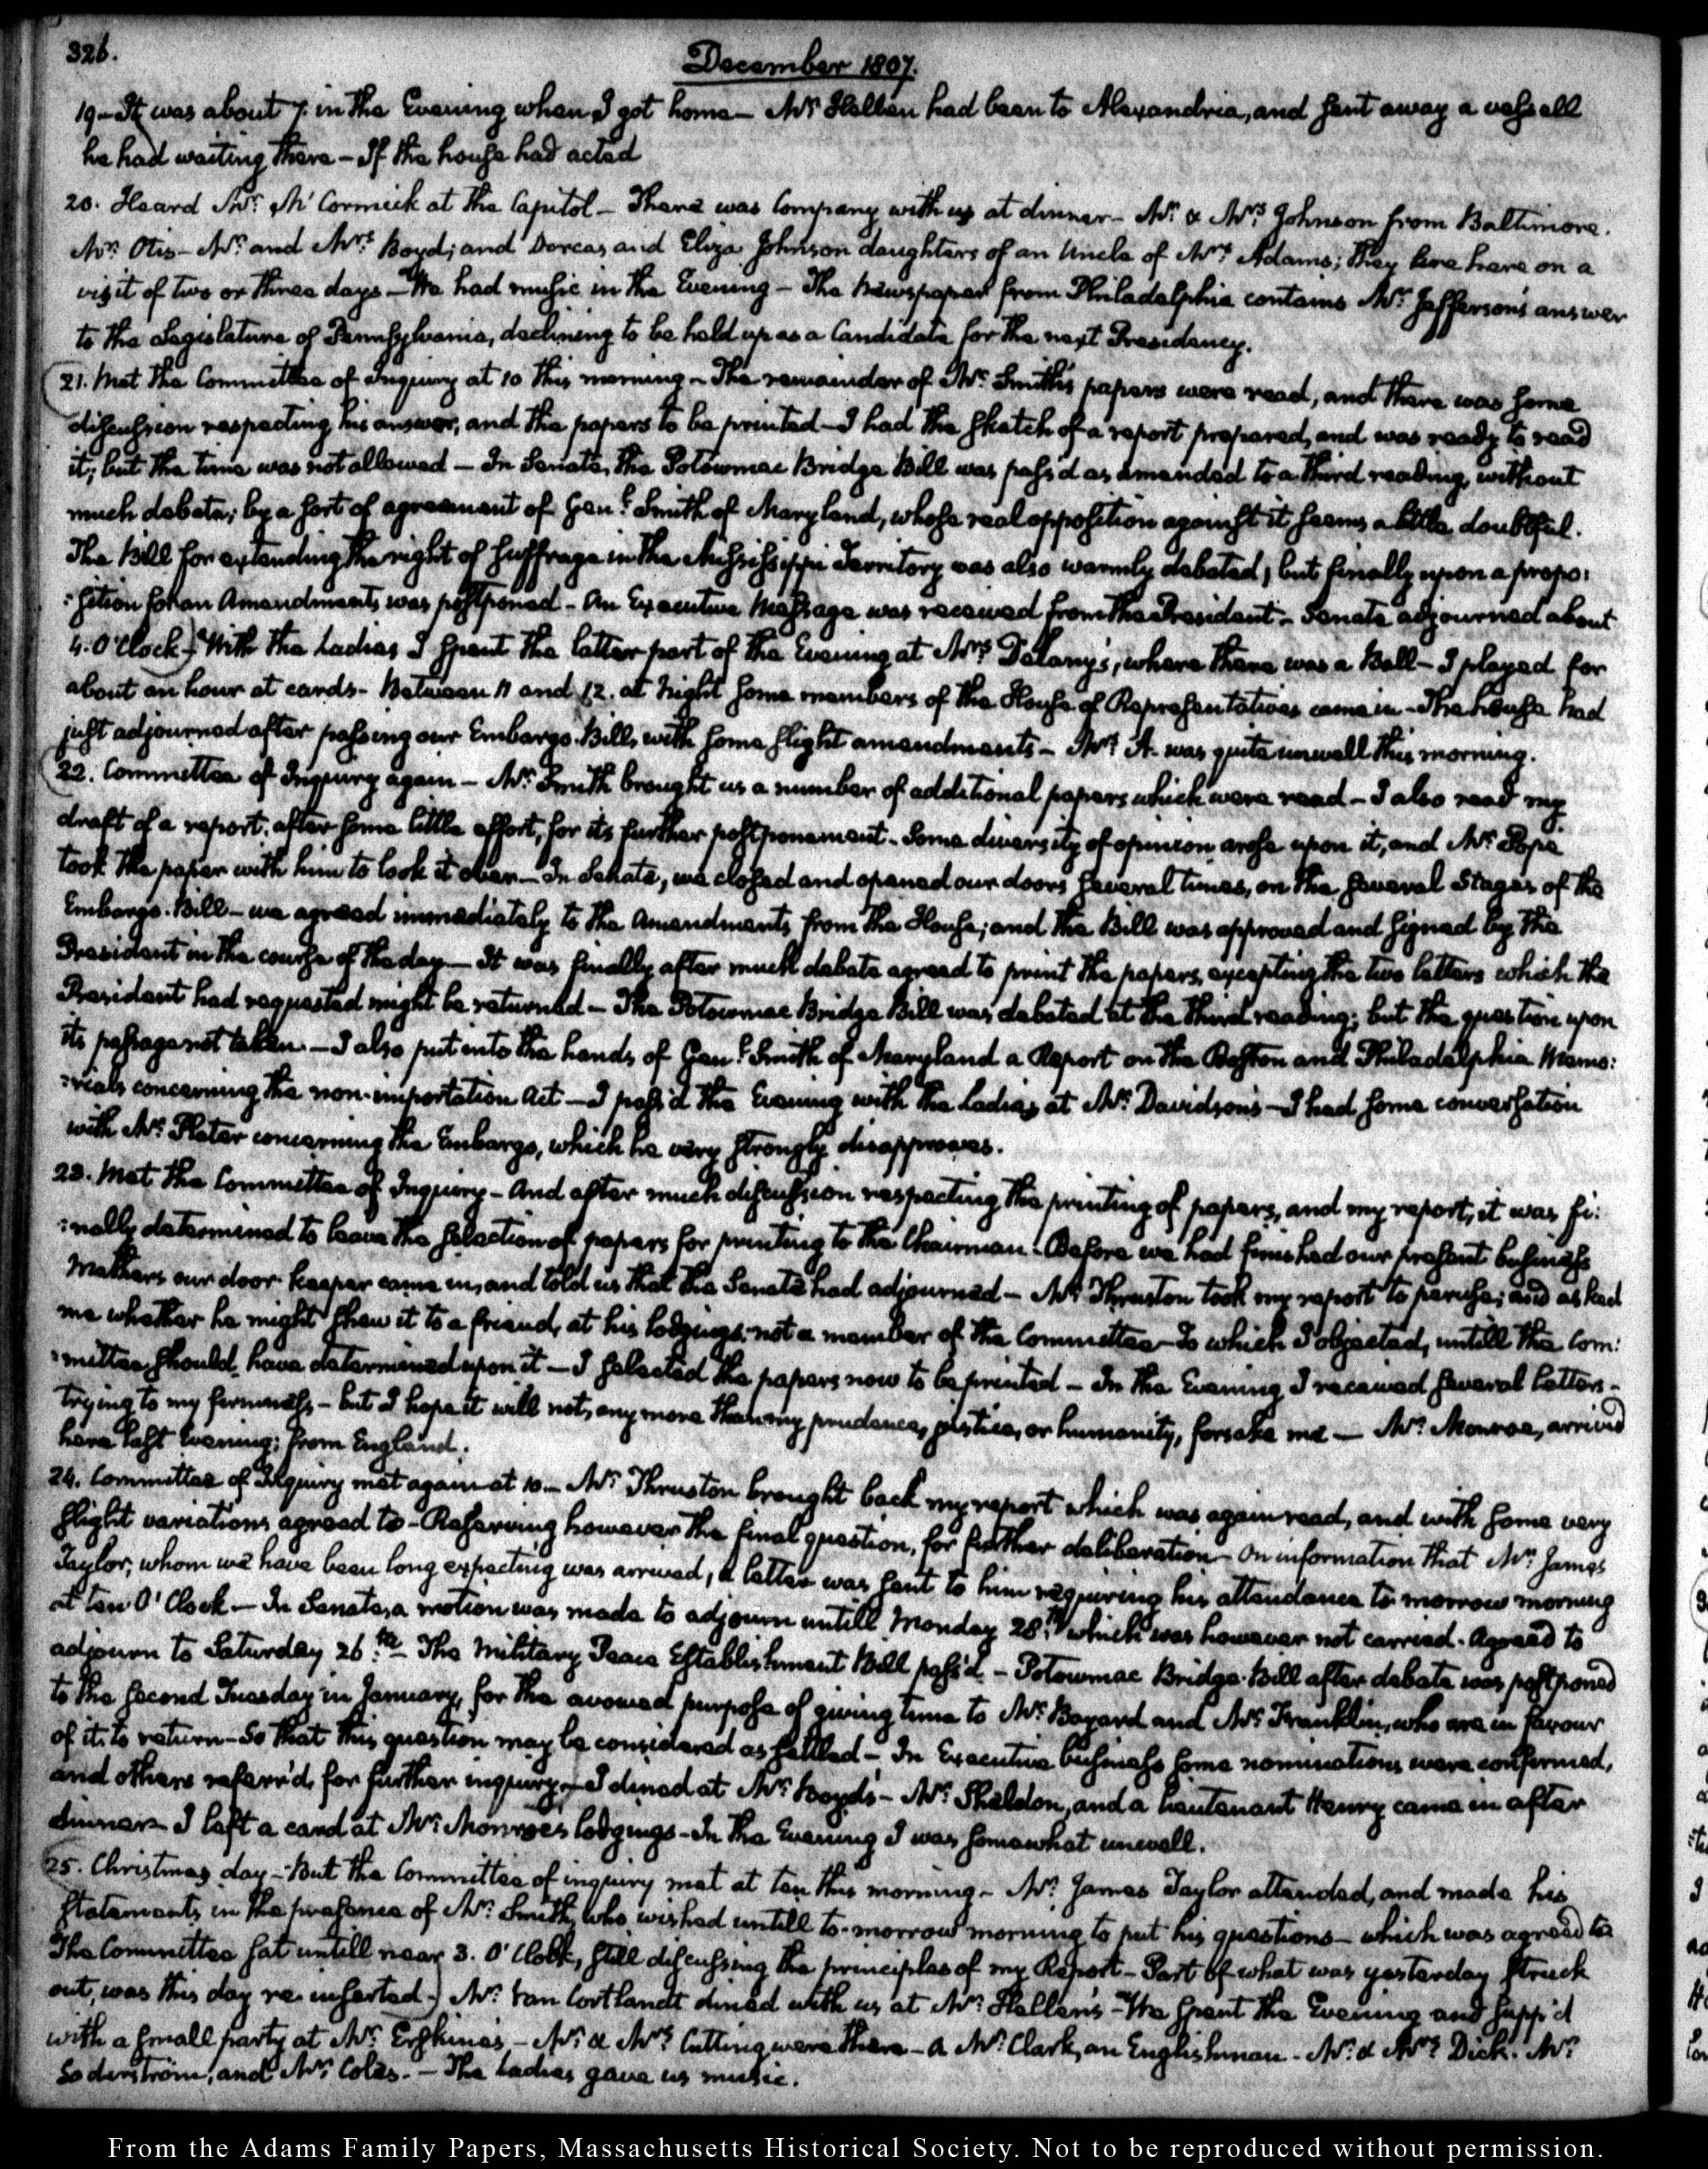 326.
December 1807.
19 - It was about 7. in the Evening when I got home - Mr. Hellen had been to Alexandria, and sent away a vessell
he had waiting there - If the house had acted
20. Heard Mr. McCormick at the Capitol - There was Company with us at dinner - Mr. & Mrs. Johnson from Baltimore.
Mr. Otis - Mr. and Mrs. Boyd; and Dorcas and Eliza Johnson daughters of an Uncle of Mrs. Adams; they are here on a
visit of two or three days - We had music in the Evening - The Newspaper from Philadelphia contains Mr. Jefferson's answer
to the Legislature of Pennsylvania, declining to be held up as a Candidate for the next Presidency.
21. Met the Committee of Inquiry at 10 this morning - The remainder of Mr. Smith's papers were read, and there was some
discussion respecting his answer, and the papers to be printed - I had the sketch of a report prepared, and was ready to read
it; but the time was not allowed - In Senate, the Potowmac Bridge Bill was pass'd as amended to a third reading, without
much debate; by a sort of agreement of Genl. Smith of Maryland, whose real opposition against it seems a little doubtful.
The Bill for extending the right of suffrage in the Mississippi Territory was also warmly debated; but finally upon a propo:
:sition for an Amendment, was postponed - An Executive Message was received from the President - Senate adjourned about
4. O'Clock) With the Ladies I spent the latter part of the Evening at Mrs. Delany's, where there was a Ball - I played for
about an hour at cards - Between 11 and 12. at Night some members of the House of Representatives came in - The house had
just adjourned after passing our Embargo Bill, with some slight amendments - Mrs. A. was quite unwell this morning.
22. Committee of Inquiry again - Mr. Smith brought us a number of additional papers which were read - I also read my
draft of a report; after some little effort, for its further postponement - Some diversity of opinion arose upon it, and Mr. Pope
took the paper with him to look it over - In Senate, we closed and opened our doors several times, on the several Stages of the
Embargo-Bill - we agreed immediately to the Amendments from the House; and the Bill was approved and signed by the
President in the course of the day - It was finally after much debate agreed to print the papers, excepting the two letters which the
President had requested might be returned - The Potowmac Bridge Bill was debated at the third reading; but the question upon
its passage not taken - I also put into the hands of Genl. Smith of Maryland a Report on the Boston and Philadelphia Memo:
:rials concerning the non-importation Act - I pass'd the Evening with the Ladies at Mr. Davidson's - I had some conversation
with Mr. Plater concerning the Embargo, which he very strongly disapproves.
23. Met the Committee of Inquiry - And after much discussion respecting the printing of papers, and my report, it was fi:
:nally determined to leave the selection of papers for printing to the Chairman. Before we had finished our present business
Mathers our door keeper came in, and told us that the Senate had adjourned - Mr. Thruston took my report to peruse; and asked
me whether he might shew it to a friend, at his lodgings, not a member of the Committee - To which I objected, untill the Com:
:mittee should have determined upon it - I selected the papers now to be printed - In the Evening I received several letters -
trying to my firmness - but I hope it will not, any more than my prudence, justice, or humanity, forsake me - Mr. Monroe, arrived
here last Evening; from England.
24. Committee of Inquiry met again at 10 - Mr. Thruston brought back my report which was again read, and with some very
slight variations agreed to - Reserving however the final question, for further deliberation - On information that Mr. James
Taylor, whom we have been long expecting was arrived, a letter was sent to him requiring his attendance to-morrow morning
at ten O'Clock - In Senate, a motion was made to adjourn untill Monday 28th. which was however not carried. Agreed to
adjourn to Saturday 26th. - The Military Peace Establishment Bill pass'd - Potowmac Bridge-Bill after debate was postponed
to the second Tuesday in January, for the avowed purpose of giving time to Mr. Bayard and Mr. Franklin, who are in favour
of it, to return - So that this question may be considered as settled - In Executive business some nominations were confirmed,
and others referr'd, for further inquiry - I dined at Mr. Boyd's - Mr. Sheldon, and a Lieutenant Henry came in after
dinner - I left a card at Mr. Monroe's lodgings - In the Evening I was somewhat unwell.
25. Christmas day - But the Committee of inquiry met at ten this morning - Mr. James Taylor attended, and made his
statements, in the presence of Mr. Smith, who wished untill to-morrow morning to put his questions - which was agreed to
The Committee sat untill near 3. O'Clock, still discussing the principles of my Report - Part of what was yesterday struck
out, was this day re-inserted.) Mr. Van Cortlandt dined with us at Mr. Hellen's - We spent the Evening and supp'd
with a small party at Mr. Erskine's - Mr. & Mrs. Cutting were there - A Mr. Clark, an Englishman - Mr. & Mrs. Dick. Mr.
Soderström, and Mr. Coles. - The Ladies gave us music.
From the Adams Family Papers, Massachusetts Historical Society. Not to be reproduced without permission.